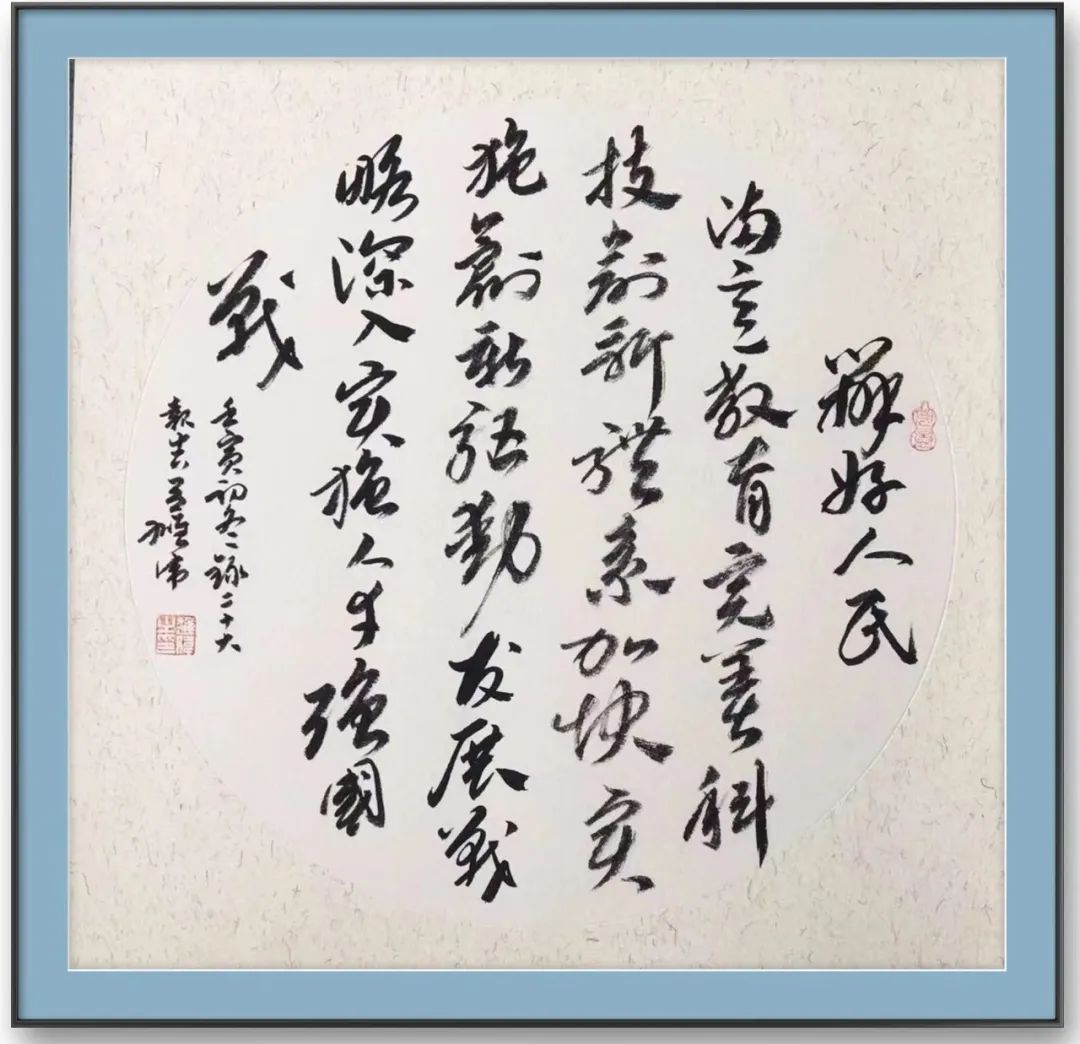 辦好人民
满意教育完善科
技創新體系加快实
施創新驱動发展戰
略深入实施人才强國
戰
壬寅初冬錄二十大
報告